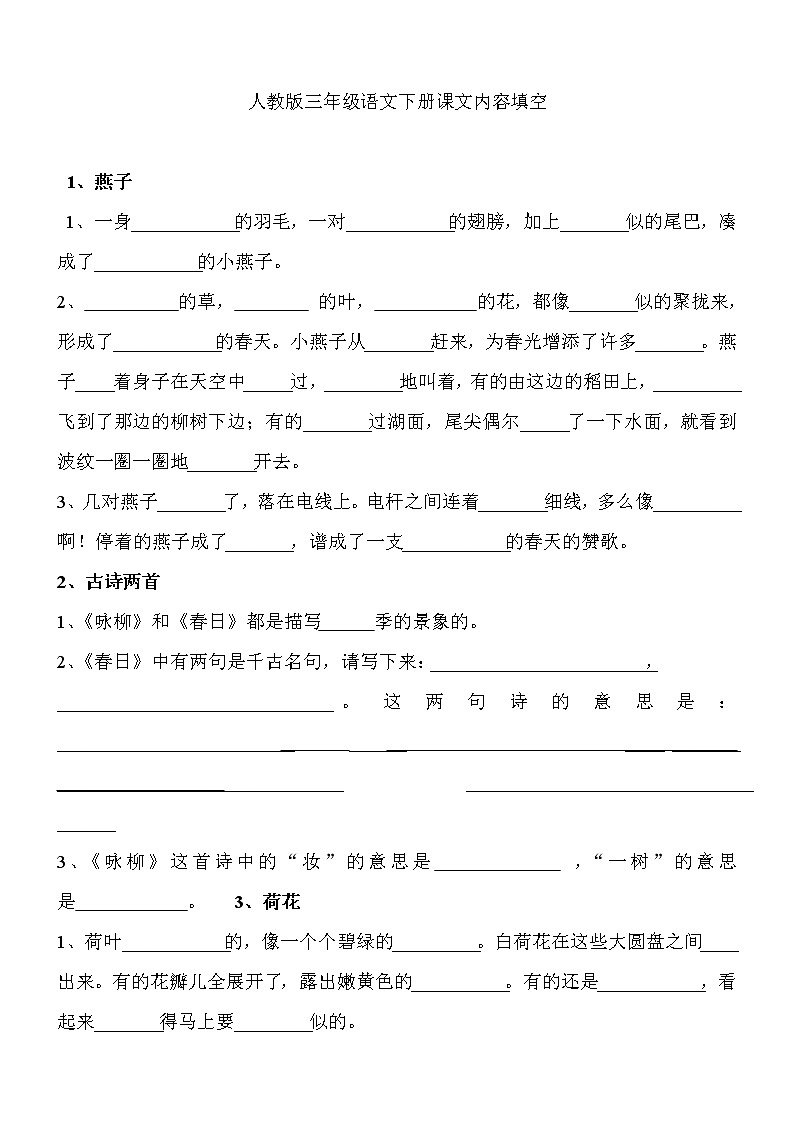 人教版三年级语文下册课文内容填空
1、燕子
1、一身___________的羽毛，一对___________的翅膀，加上_______似的尾巴，凑
成了___________的小燕子。
2、__________的草，________ 的叶，___________的花，都像_______似的聚拢来，
形成了___________的春天。小燕子从_______赶来，为春光增添了许多_______。燕
子____着身子在天空中_____过，________地叫着，有的由这边的稻田上，_________
飞到了那边的柳树下边；有的_______过湖面，尾尖偶尔_____了一下水面，就看到
波纹一圈一圈地_______开去。
3、几对燕子_______了，落在电线上。电杆之间连着_______细线，多么像_________
啊！停着的燕子成了_______，谱成了一支___________的春天的赞歌。
2、古诗两首
1、《咏柳》和《春日》都是描写______季的景象的。
2、《春日》中有两句是千古名句，请写下来：______________________，
____________________________。这两句诗的意思是：
______________________________________________________________________
_____________________________ _____________________________
______
3、《咏柳》这首诗中的“妆”的意思是_____________ ，“一树”的意思
是____________。 3、荷花
1、荷叶___________的，像一个个碧绿的_________。白荷花在这些大圆盘之间____
出来。有的花瓣儿全展开了，露出嫩黄色的__________。有的还是___________，看
起来_______得马上要________似的。